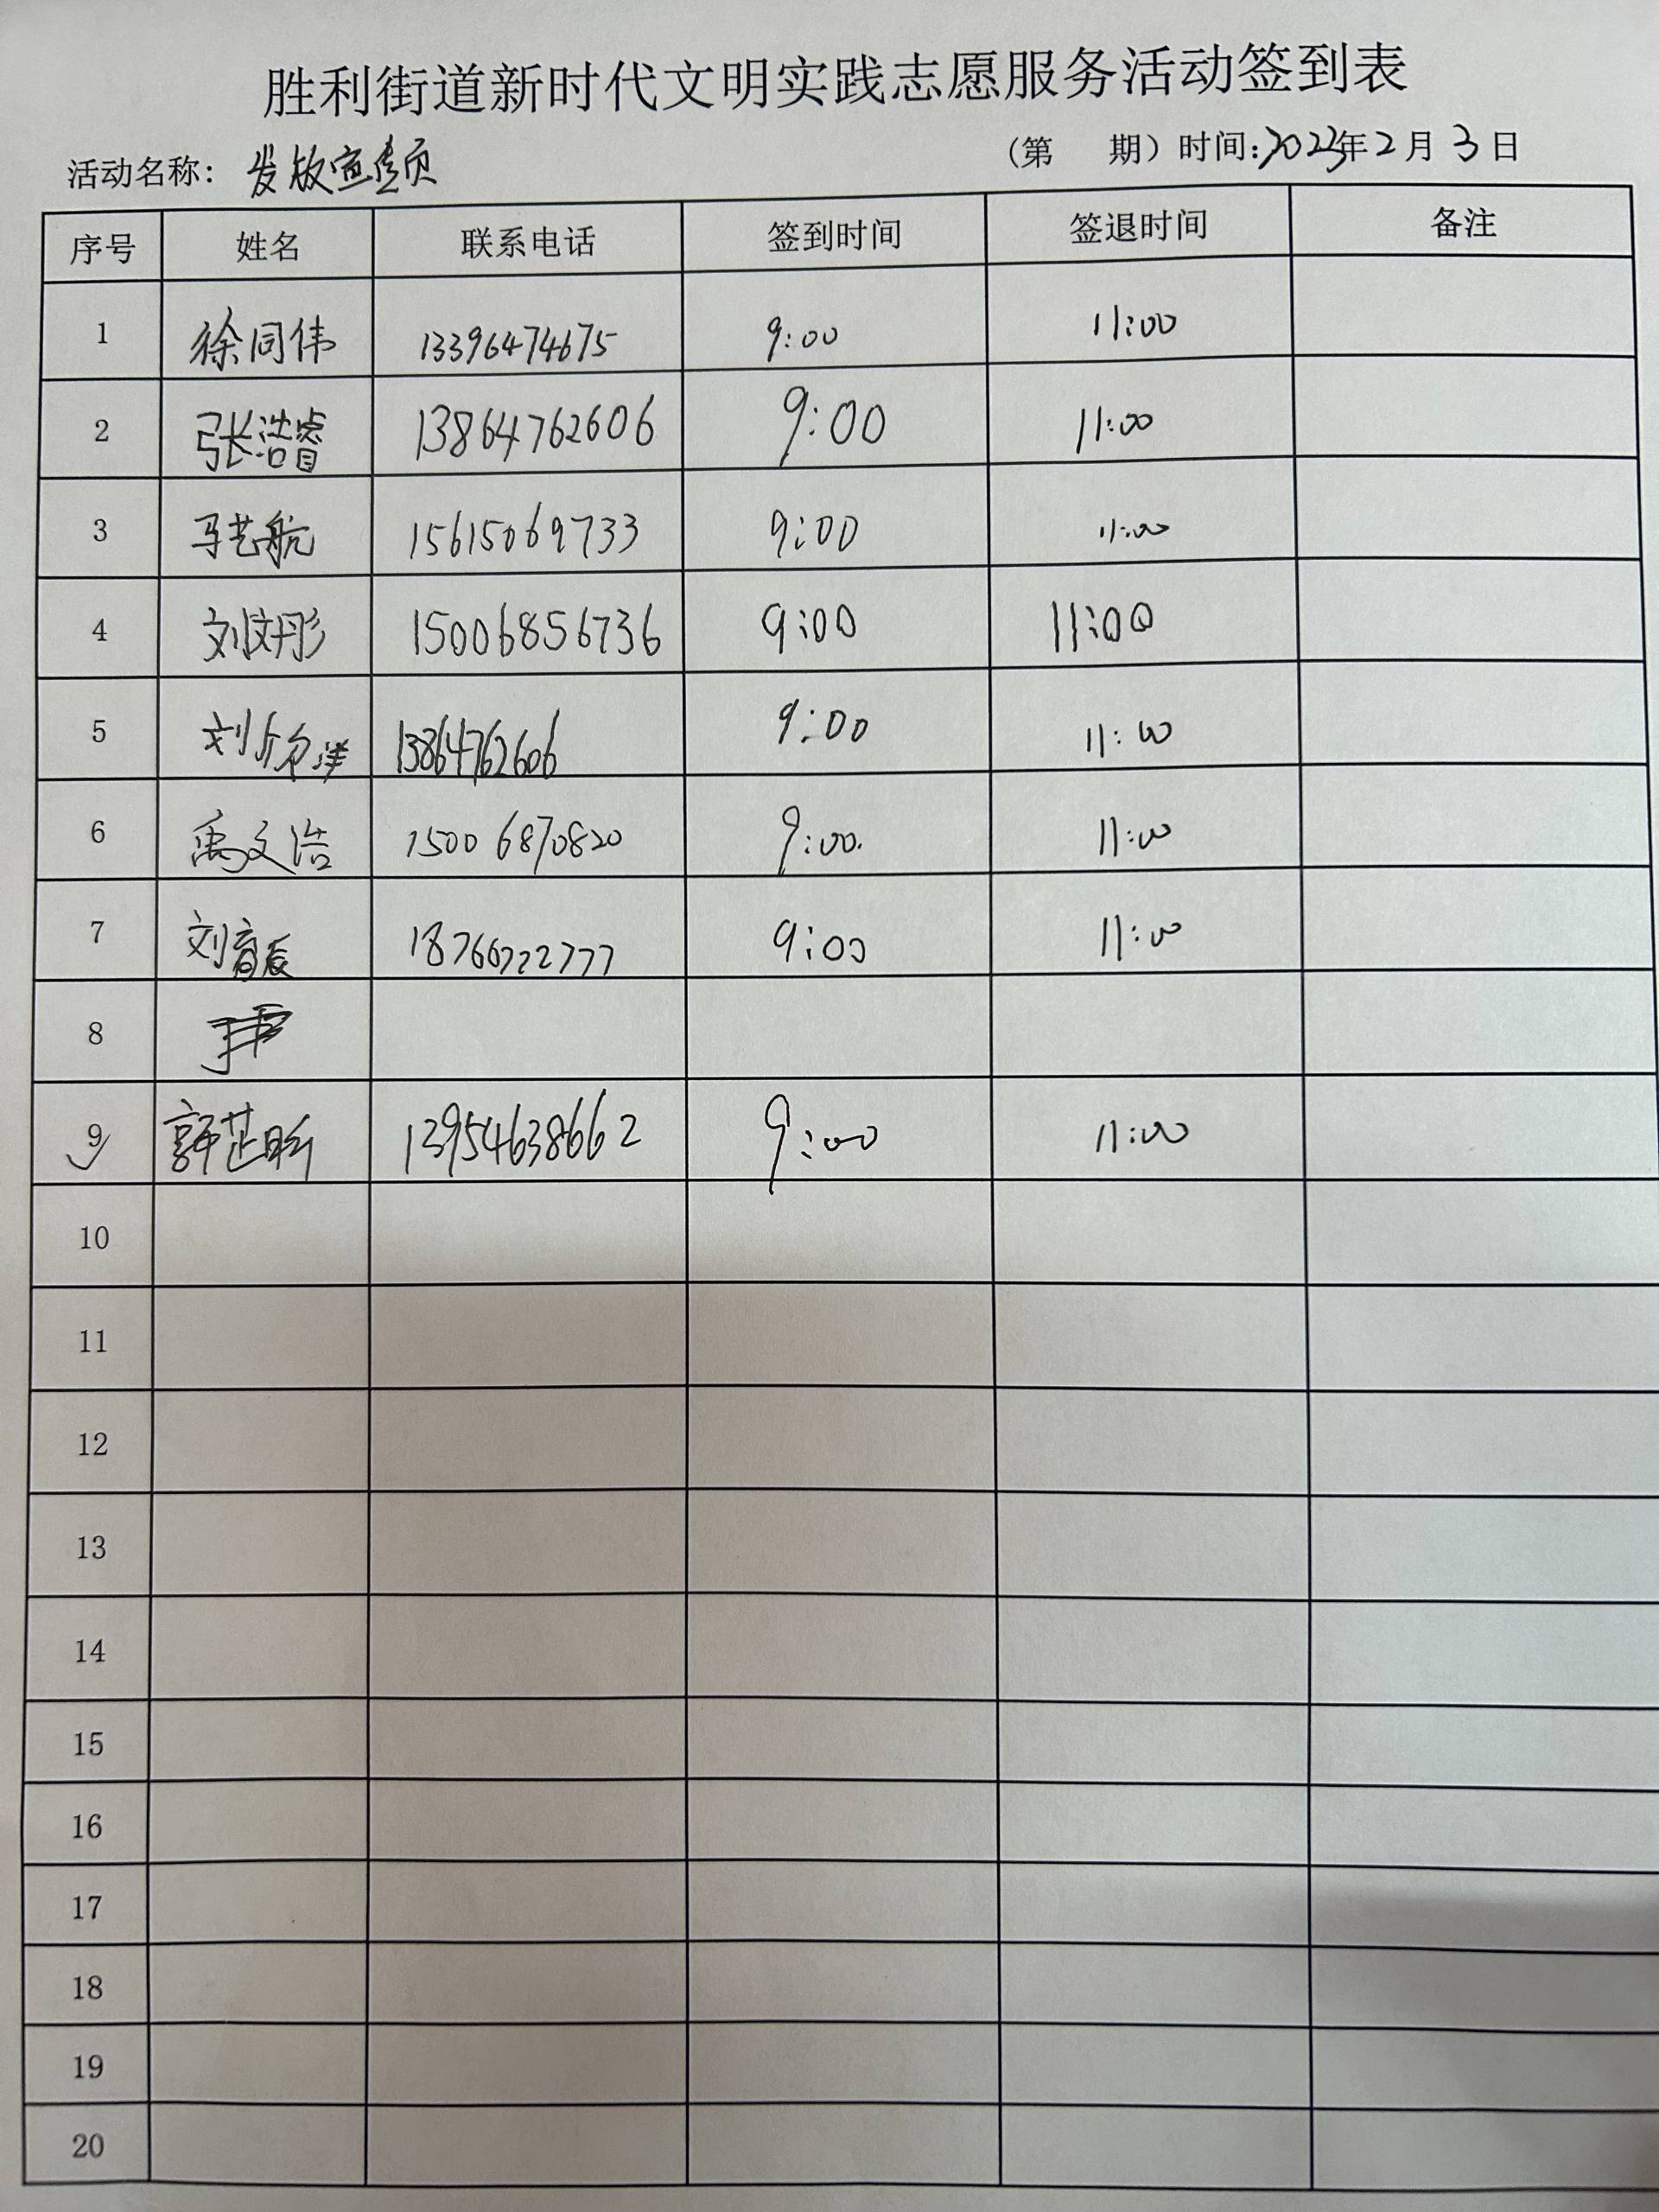 胜利街道新时代文明实践志愿服务活动签到表
活动名称：发放宣传页 （第 期）时间：2023年2月3日
序号 姓名 联系电话 签到时间 签退时间 备注
1 徐同伟 13396474675 9:00 11:00
2 张浩睿 13864762606 9:00 11:00
3 马艺航 15615069733 9:00 11:00
4 刘文彤 15006856736 9:00 11:00
5 刘 洋 13864762606 9:00 11:00
6 禹文浩 15006870820 9:00. 11:00
7 刘育辰 18766722777 9:00 11:00
8
9 郭芷昕 13954638662 9:00 11:00
10
11
12
13
14
15
16
17
18
19
20